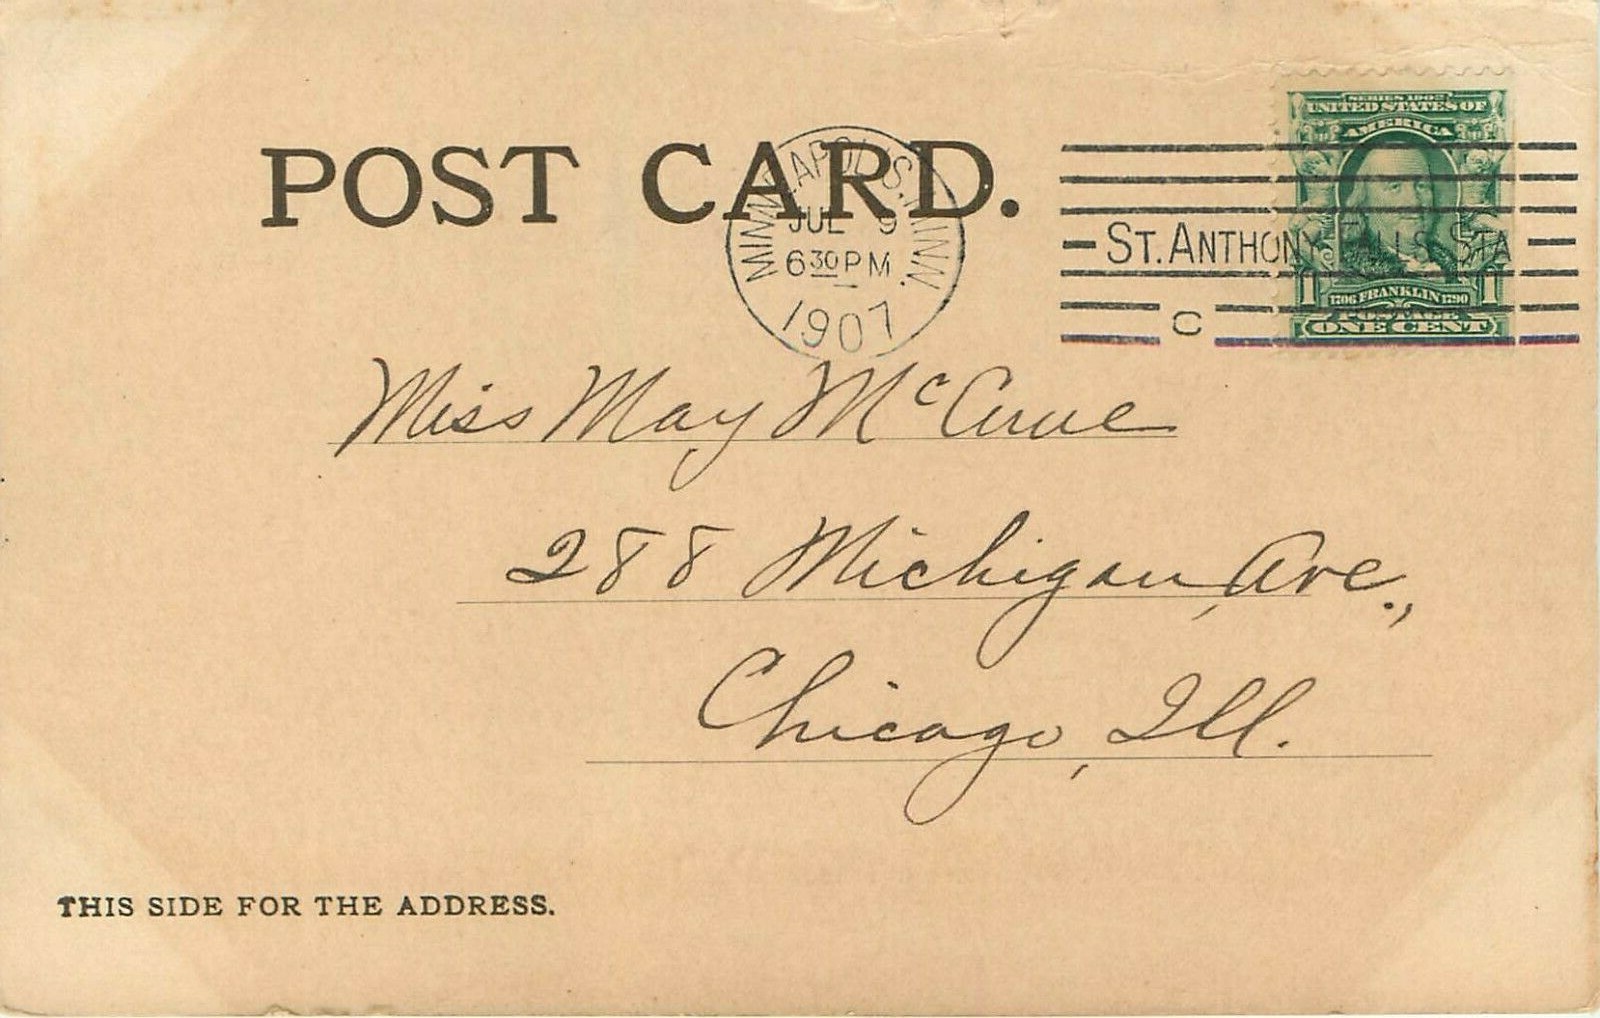 SERIES 1902
UNITED STATES OF
AMERICA
POST CARD.
MINNEAPOLIS, MINN.
JUL 9
630 PM
1907
ST. ANTHONY FALLS STA
C
1 1706 FRANKLIN 1790 1
POSTAGE
ONE CENT
Miss May
288 Michigan, Ave.,
Chicago, Ill.
THIS SIDE FOR THE ADDRESS.